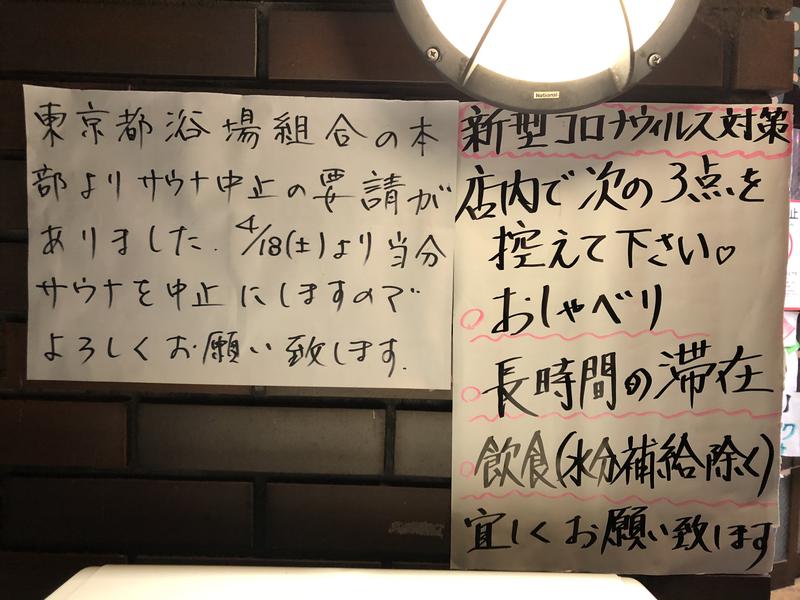 東京都浴場組合の本
部よりサウナ中止の要請が
ありました. 4/18(土)より当分
サウナを中止にしますので
よろしくお願い致します.
National
新型コロナウィルス対策
店内で次の3点を
控えて下さい♡
○おしゃべり
○長時間の滞在
○飲食(水分補給除く)
宜しくお願い致します